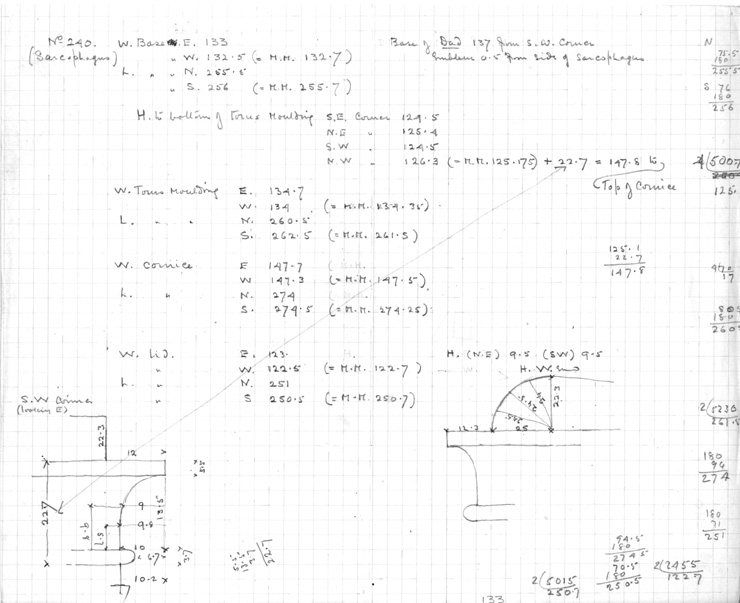 No 240. W. Base E. 133
(Sarcophagus) " W. 132.5 (= M.M. 132.7)
L. " " N. 255.5
" S. 256 (= M.M. 255.7)
Base of Dad 137 from S.W. Corner
Emblem 0.5 from side of Sarcophagus
H. to bottom of Torus Moulding S.E. Corner 124.5
N.E " 125.4
S.W " 124.5
N.W " 126.3 (= M.M. 125.175) + 22.7 = 147.8 to
(Top of Cornice
W. Torus Moulding E. 134.7
W. 134 (= M.M. 134.35)
L. " " N. 260.5
S. 262.5 (= M.M. 261.5)
W. Cornice E 147.7
W 147.3 (= M.M. 147.5)
L. " N. 274
S. 274.5 (= M.M. 274.25)
125.1
22.7
147.8
W. Lid. E. 123.
" W. 122.5 (= M.M. 122.7)
L. " N. 251
" S 250.5 (= M.M. 250.7)
H. (N.E) 9.5 (S.W) 9.5
H. W. End
S.W Corner
(looking E)
22.3
12
22.7
9
9.5
13.5
10
6.7
2.7
10.2
12.2
25
22.3
N
75.5
180
255.5
S 76
180
256
2(5007
125.
180
2(5230
261.5
180
94
274
180
71
251
94.5
180
274.5
70.5
180
250.5
2(2455
1227
2(5015
250.7
133